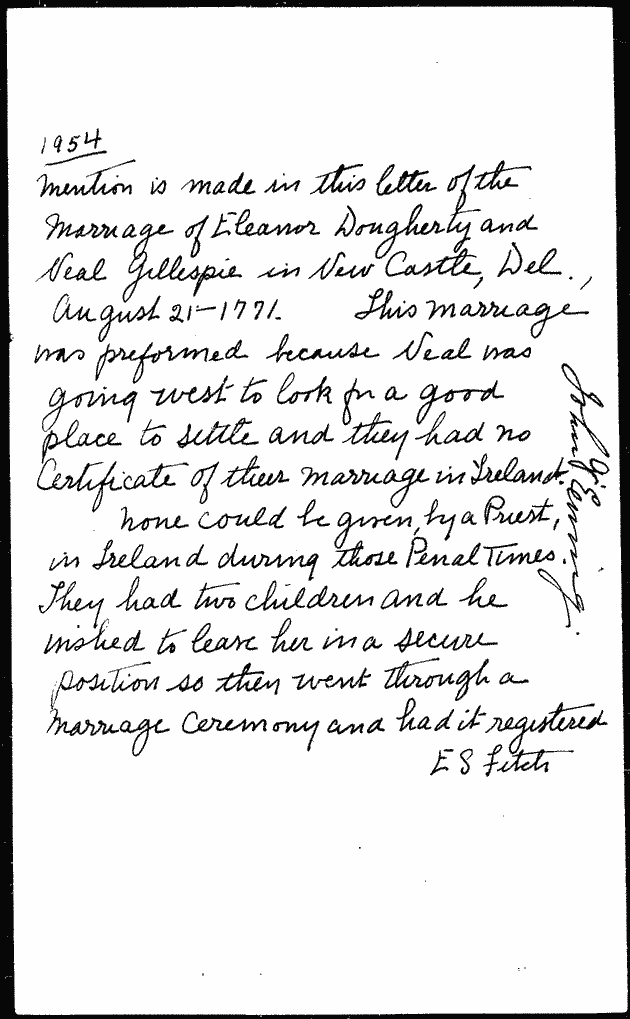 1954
Mention is made in this letter of the
Marriage of Eleanor Dougherty and
Neal Gillespie in New Castle, Del.,
August 21-1771. This marriage
was preformed because Neal was
going west to look for a good
place to settle and they had no
Certificate of their marriage in Ireland.
None could be given, by a Priest,
in Ireland during those Penal Times.
They had two children and he
wished to leave her in a secure
position so they went through a
Marriage Ceremony and had it registered
E S Fitch
John